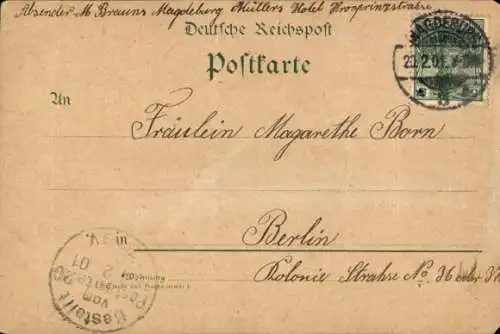 Absender M Brauns Magdeburg Müllers Hotel Kronprinzstrahse
Deutsche Reichspost
Postkarte
MAGDEBURG
20.2.01.
An
Fräulein Magarethe Born
in
Berlin
Wohnung
Kolonie Strahse No. 36
Bestellt
vom
Postamte
2
01